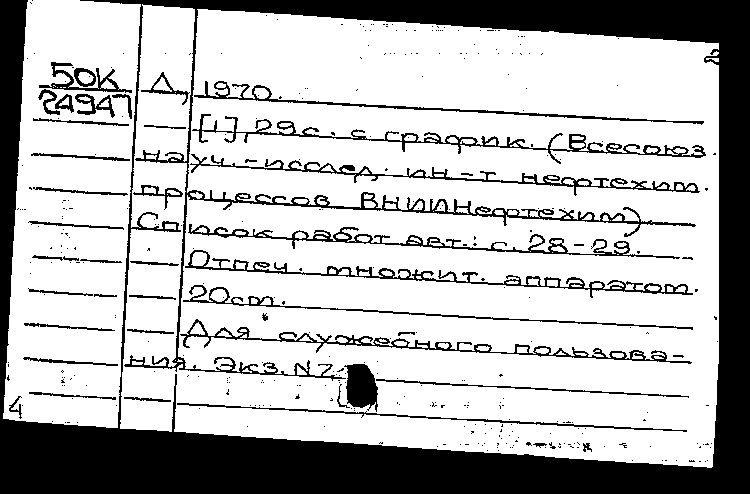 2
50К
24947
Л, 1970.
[1], 29с. с график. (Всесоюз.
науч.-исслед. ин-т нефтехим.
процессов ВНИИНефтехим).
Список работ авт.: с. 28-29.
Отпеч. множит. аппаратом.
20см.
Для служебного пользова-
ния. Экз. N7
4